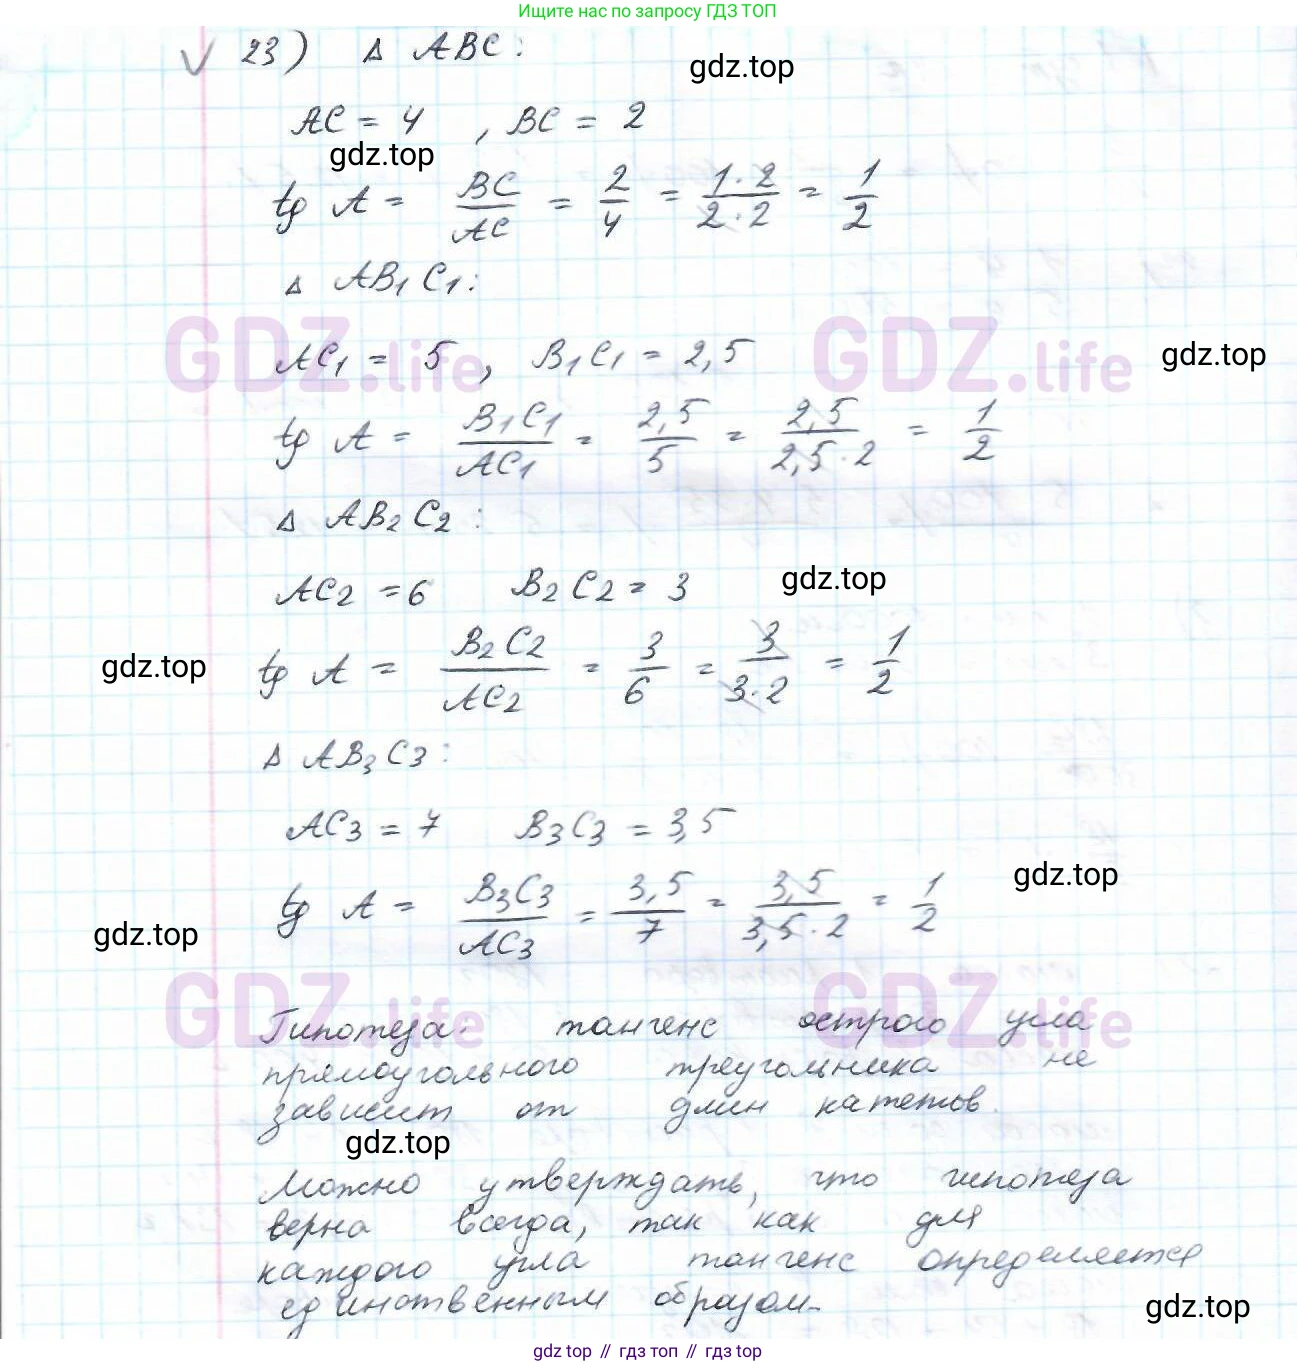 Ищите нас по запросу ГДЗ ТОП
√ 23) Δ ABC:
gdz.top
AC = 4 , BC = 2
gdz.top
tg A = BC/AC = 2/4 = 1·2/2·2 = 1/2
Δ AB₁C₁:
GDZ.life GDZ.life
AC₁ = 5 , B₁C₁ = 2,5
gdz.top
tg A = B₁C₁/AC₁ = 2,5/5 = 2,5/2,5·2 = 1/2
Δ AB₂C₂:
AC₂ = 6 B₂C₂ = 3
gdz.top
gdz.top
tg A = B₂C₂/AC₂ = 3/6 = 3/3·2 = 1/2
Δ AB₃C₃:
AC₃ = 7 B₃C₃ = 3,5
gdz.top
tg A = B₃C₃/AC₃ = 3,5/7 = 3,5/3,5·2 = 1/2
gdz.top
GDZ.life GDZ.life
Гипотеза: тангенс острого угла
прямоугольного треугольника не
зависит от длин катетов.
gdz.top
Можно утверждать, что гипотеза
верна всегда, так как для
каждого угла тангенс определяется
единственным образом.
gdz.top
gdz top // гдз топ // гдз top